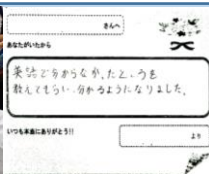 さんへ
あなたがいたから
英語で分からなかったところを
教えてもらい、分かるようになりました。
いつも本当にありがとう!!
より